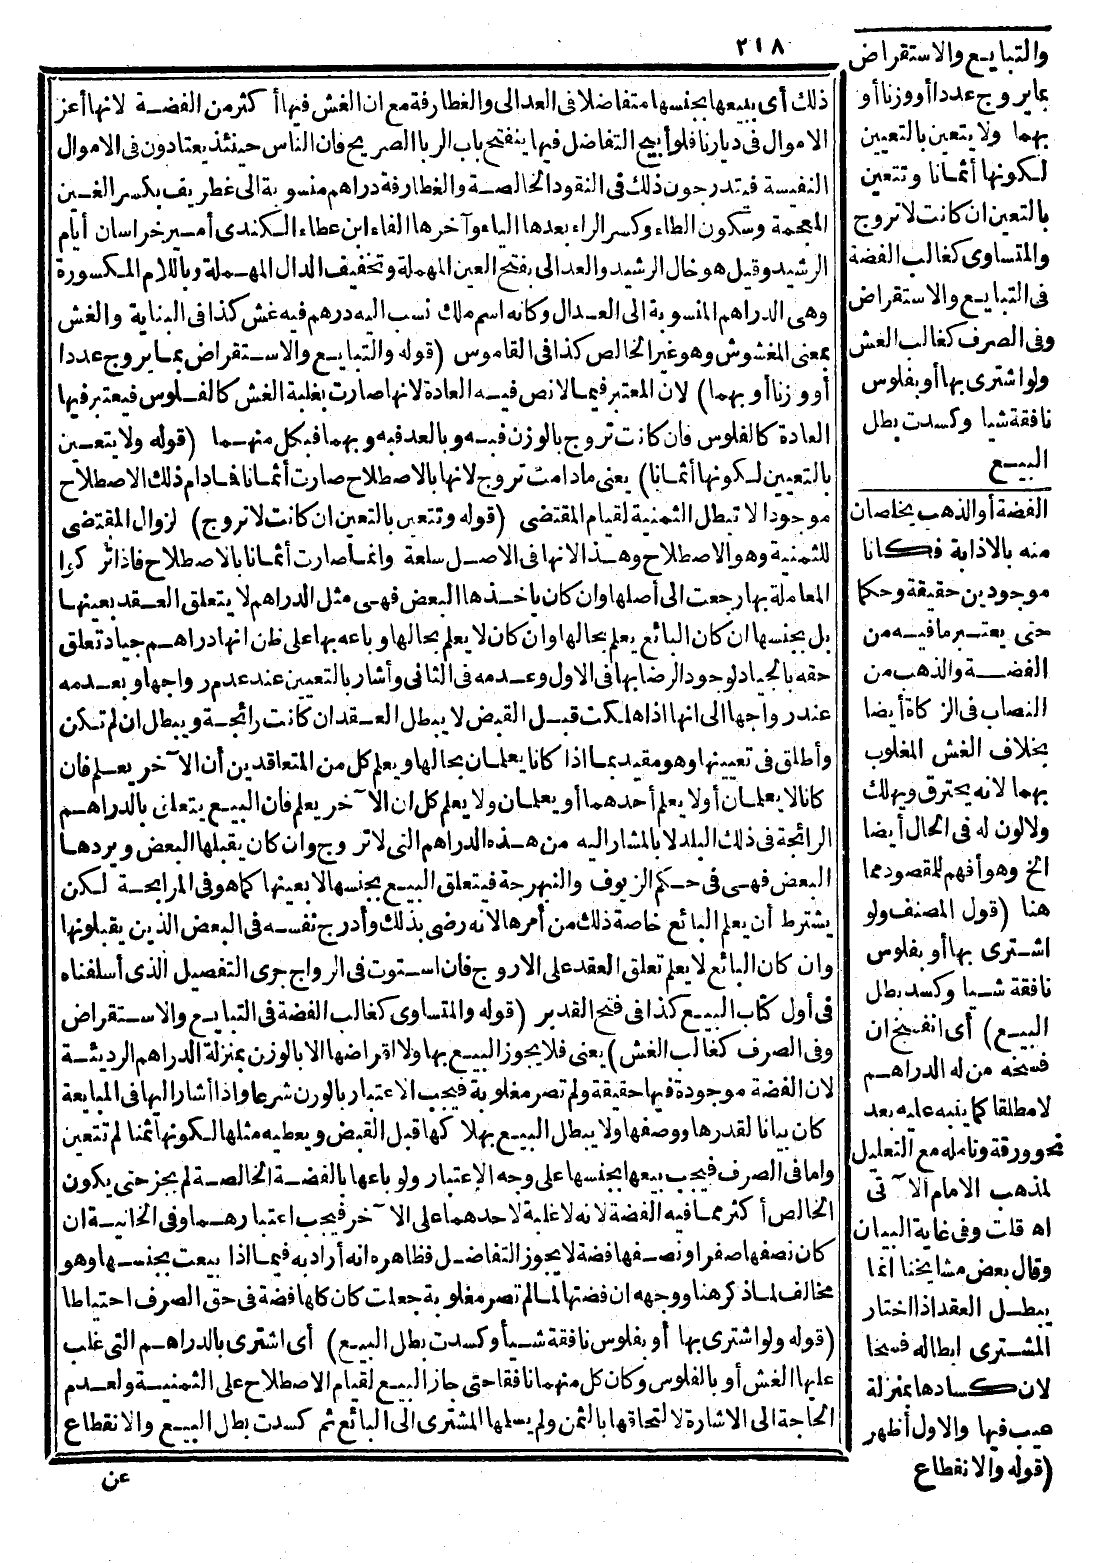 ٢١٨
ذلك أى ببيعها بجنسها متفاضلا فى العدالى والغطارفة مع ان الغش فيها أكثر من الفضة لانها أعز
الاموال فى ديارنا فلو أبيح التفاضل فيها ينفتح باب الربا الصريح فان الناس حينئذ يعتادون فى الاموال
النفيسة فيتدرجون ذلك فى النقود الخالصة والغطارفة دراهم منسوبة الى غطريف بكسر الغين
المعجمة وسكون الطاء وكسر الراء بعدها الياء وآخرها الفاء ابن عطاء الكندى أمير خراسان أيام
الرشيد وقيل هو خال الرشيد والعدالى بفتح العين المهملة وتخفيف الدال المهملة وباللام المكسورة
وهى الدراهم المنسوبة الى العدال وكانه اسم ملك نسب اليه درهم فيه غش كذا فى البناية والغش
بمعنى المغشوش وهو غير الخالص كذا فى القاموس (قوله والتبايع والاستقراض بما يروج عددا
أو وزنا أو بهما) لان المعتبر فيما لا نص فيه العادة لانها صارت بغلبة الغش كالفلوس فيعتبر فيها
العادة كالفلوس فان كانت تروج بالوزن فبه وبالعد فبه وبهما فبكل منهما (قوله ولا يتعين
بالتعيين لكونها أثمانا) يعنى مادامت تروج لانها بالاصطلاح صارت أثمانا فمادام ذلك الاصطلاح
موجودا لا تبطل الثمنية لقيام المقتضى (قوله وتتعين بالتعين ان كانت لا تروج) لزوال المقتضى
للثمنية وهو الاصطلاح وهذا لانها فى الاصل سلعة وانما صارت أثمانا بالاصطلاح فاذا تركوا
المعاملة بها رجعت الى أصلها وان كان يأخذها البعض فهى مثل الدراهم لا يتعلق العقد بعينها
بل بجنسها ان كان البائع يعلم بحالها وان كان لا يعلم بحالها وباعه بها على ظن انها دراهم جياد تعلق
حقه بالجياد لوجود الرضا بها فى الاول وعدمه فى الثانى وأشار بالتعيين عند عدم رواجها وبعدمه
عند رواجها الى انها اذا هلكت قبل القبض لا يبطل العقد ان كانت رائجة ويبطل ان لم تكن
وأطلق فى تعيينها وهو مقيد بما اذا كانا يعلمان بحالها ويعلم كل من المتعاقدين أن الآخر يعلم فان
كانا لا يعلمان أو لا يعلم أحدهما أو يعلمان ولا يعلم كل ان الآخر يعلم فان البيع يتعلق بالدراهم
الرائجة فى ذلك البلد لا بالمشار اليه من هذه الدراهم التى لا تروج وان كان يقبلها البعض ويردها
البعض فهى فى حكم الزيوف والنبهرجة فيتعلق البيع بجنسها لا بعينها كما هو فى المرابحة لكن
يشترط أن يعلم البائع خاصة ذلك من أمرها لانه رضى بذلك وأدرج نفسه فى البعض الذين يقبلونها
وان كان البائع لا يعلم تعلق العقد على الاروج فان استوت فى الرواج جرى التفصيل الذى أسلفناه
فى أول كتاب البيع كذا فى فتح القدير (قوله والمتساوى كغالب الفضة فى التبايع والاستقراض
وفى الصرف كغالب الغش) يعنى فلا يجوز البيع بها ولا اقراضها الا بالوزن بمنزلة الدراهم الرديئة
لان الفضة موجودة فيها حقيقة ولم تصر مغلوبة فيجب الاعتبار بالوزن شرعا واذا أشار اليها فى المبايعة
كان بيانا لقدرها ووصفها ولا يبطل البيع بهلاكها قبل القبض ويعطيه مثلها لكونها ثمنا لم تتعين
واما فى الصرف فيجب بيعها بجنسها على وجه الاعتبار ولو باعها بالفضة الخالصة لم يجز حتى يكون
الخالص أكثر مما فيه الفضة لانه لا غلبة لاحدهما على الآخر فيجب اعتبارهما وفى الخانية ان
كان نصفها صفرا ونصفها فضة لا يجوز التفاضل فظاهره انه أراد به فيما اذا بيعت بجنسها وهو
مخالف لما ذكر هنا ووجهه ان فضتها لما لم تصر مغلوبة جعلت كان كلها فضة فى حق الصرف احتياطا
(قوله ولو اشترى بها أو بفلوس نافقة شيأ وكسدت بطل البيع) أى اشترى بالدراهم التى غلب
عليها الغش أو بالفلوس وكان كل منهما نافقا حتى جاز البيع لقيام الاصطلاح على الثمنية ولعدم
الحاجة الى الاشارة لالتحاقها بالثمن ولم يسلمها المشترى الى البائع ثم كسدت بطل البيع والانقطاع
عن
والتبايع والاستقراض
بما يروج عددا أو وزنا أو
بهما ولا يتعين بالتعيين
لكونها أثمانا وتتعين
بالتعين ان كانت لا تروج
والمتساوى كغالب الفضة
فى التبايع والاستقراض
وفى الصرف كغالب الغش
ولو اشترى بها أو بفلوس
نافقة شيأ وكسدت بطل
البيع
الفضة أو الذهب يخلصان
منه بالاذابة فكانا
موجودين حقيقة وحكما
حتى يعتبر ما فيه من
الفضة والذهب من
النصاب فى الزكاة أيضا
بخلاف الغش المغلوب
بهما لانه يحترق ويهلك
ولا لون له فى الحال أيضا
الخ وهو أفهم للمقصود مما
هنا (قول المصنف ولو
اشترى بها أو بفلوس
نافقة شيأ وكسد بطل
البيع) أى انفسخ ان
فسخه من له الدراهم
لا مطلقا كما ينبه عليه بعد
نحو ورقة وتامله مع التعليل
لمذهب الامام الآتى
اه قلت وفى غاية البيان
وقال بعض مشايخنا انما
يبطل العقد اذا اختار
المشترى ابطاله فسخا
لان كسادها بمنزلة
عيب فيها والاول أظهر
(قوله والانقطاع